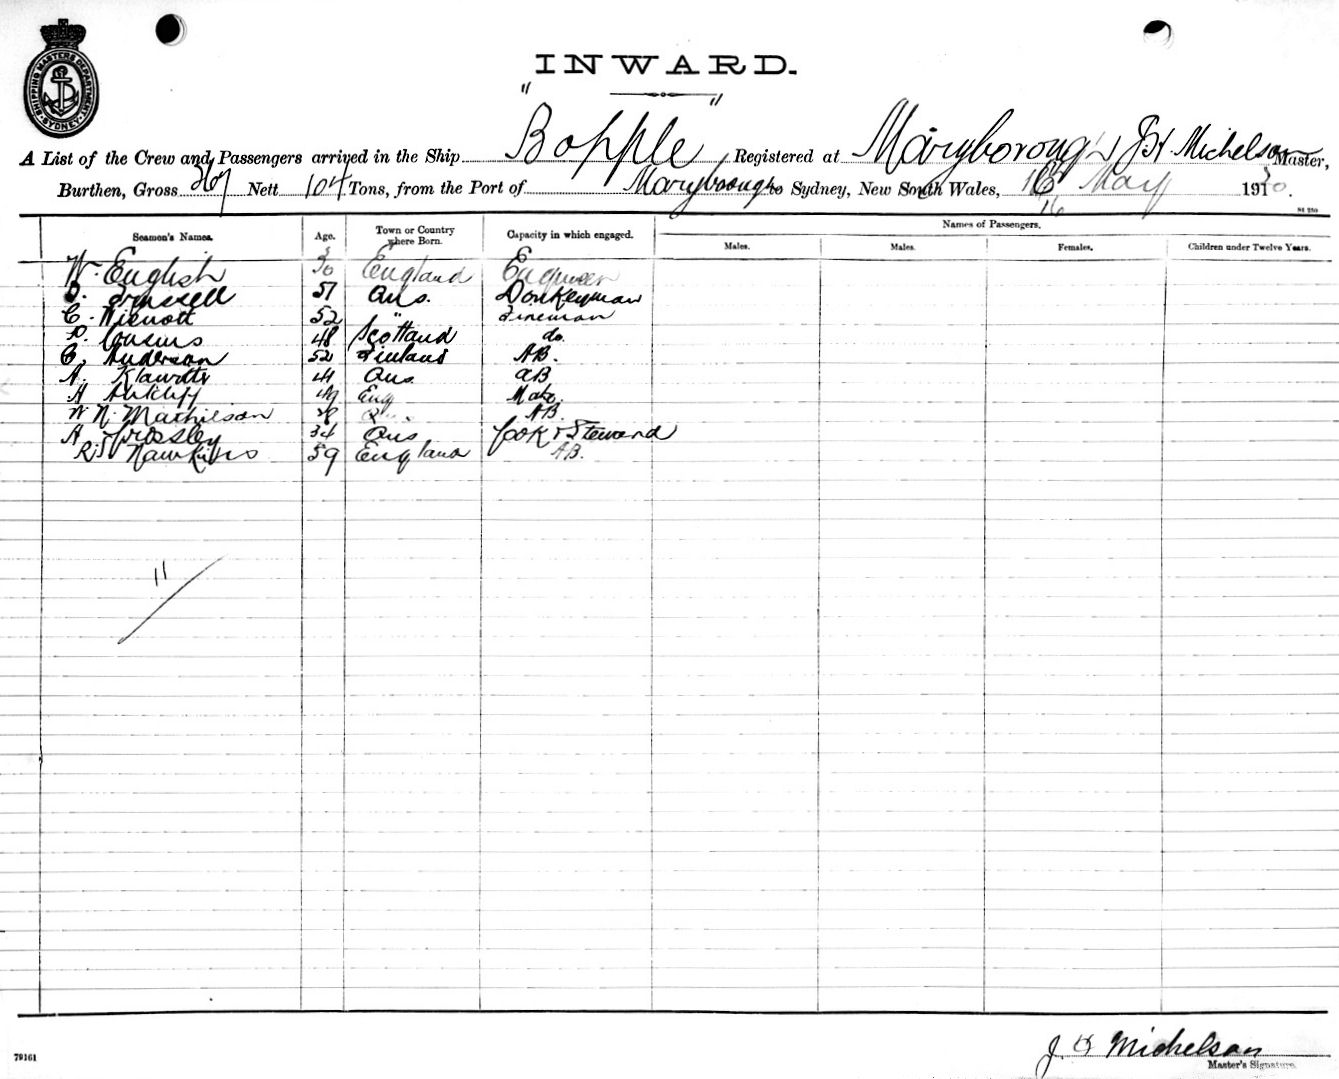 SHIPPING MASTERS DEPARTMENT SYDNEY
INWARD.
A List of the Crew and Passengers arrived in the Ship "Bopple" Registered at Maryborough J H Michelson Master,
Burthen, Gross 367 Nett 104 Tons, from the Port of Maryborough to Sydney, New South Wales, 16 May 1930.
16
81 250
Names of Passengers.
Seamen's Names. Age. Town or Country where Born. Capacity in which engaged. Males. Males. Females. Children under Twelve Years.
W. English 30 England Engineer
51 Aus. Donkeyman
C. 52 " Fireman
P. Cousins 48 Scotland do.
C. Anderson 52 Finland AB.
A. 44 Aus. AB
H Sutcliff 49 Eng Mate.
W N. Mathieson AB.
H Crossley 34 Aus Cook & Steward
R J Hawkins 59 England AB.
11
J H Michelson
Master's Signature.
79161